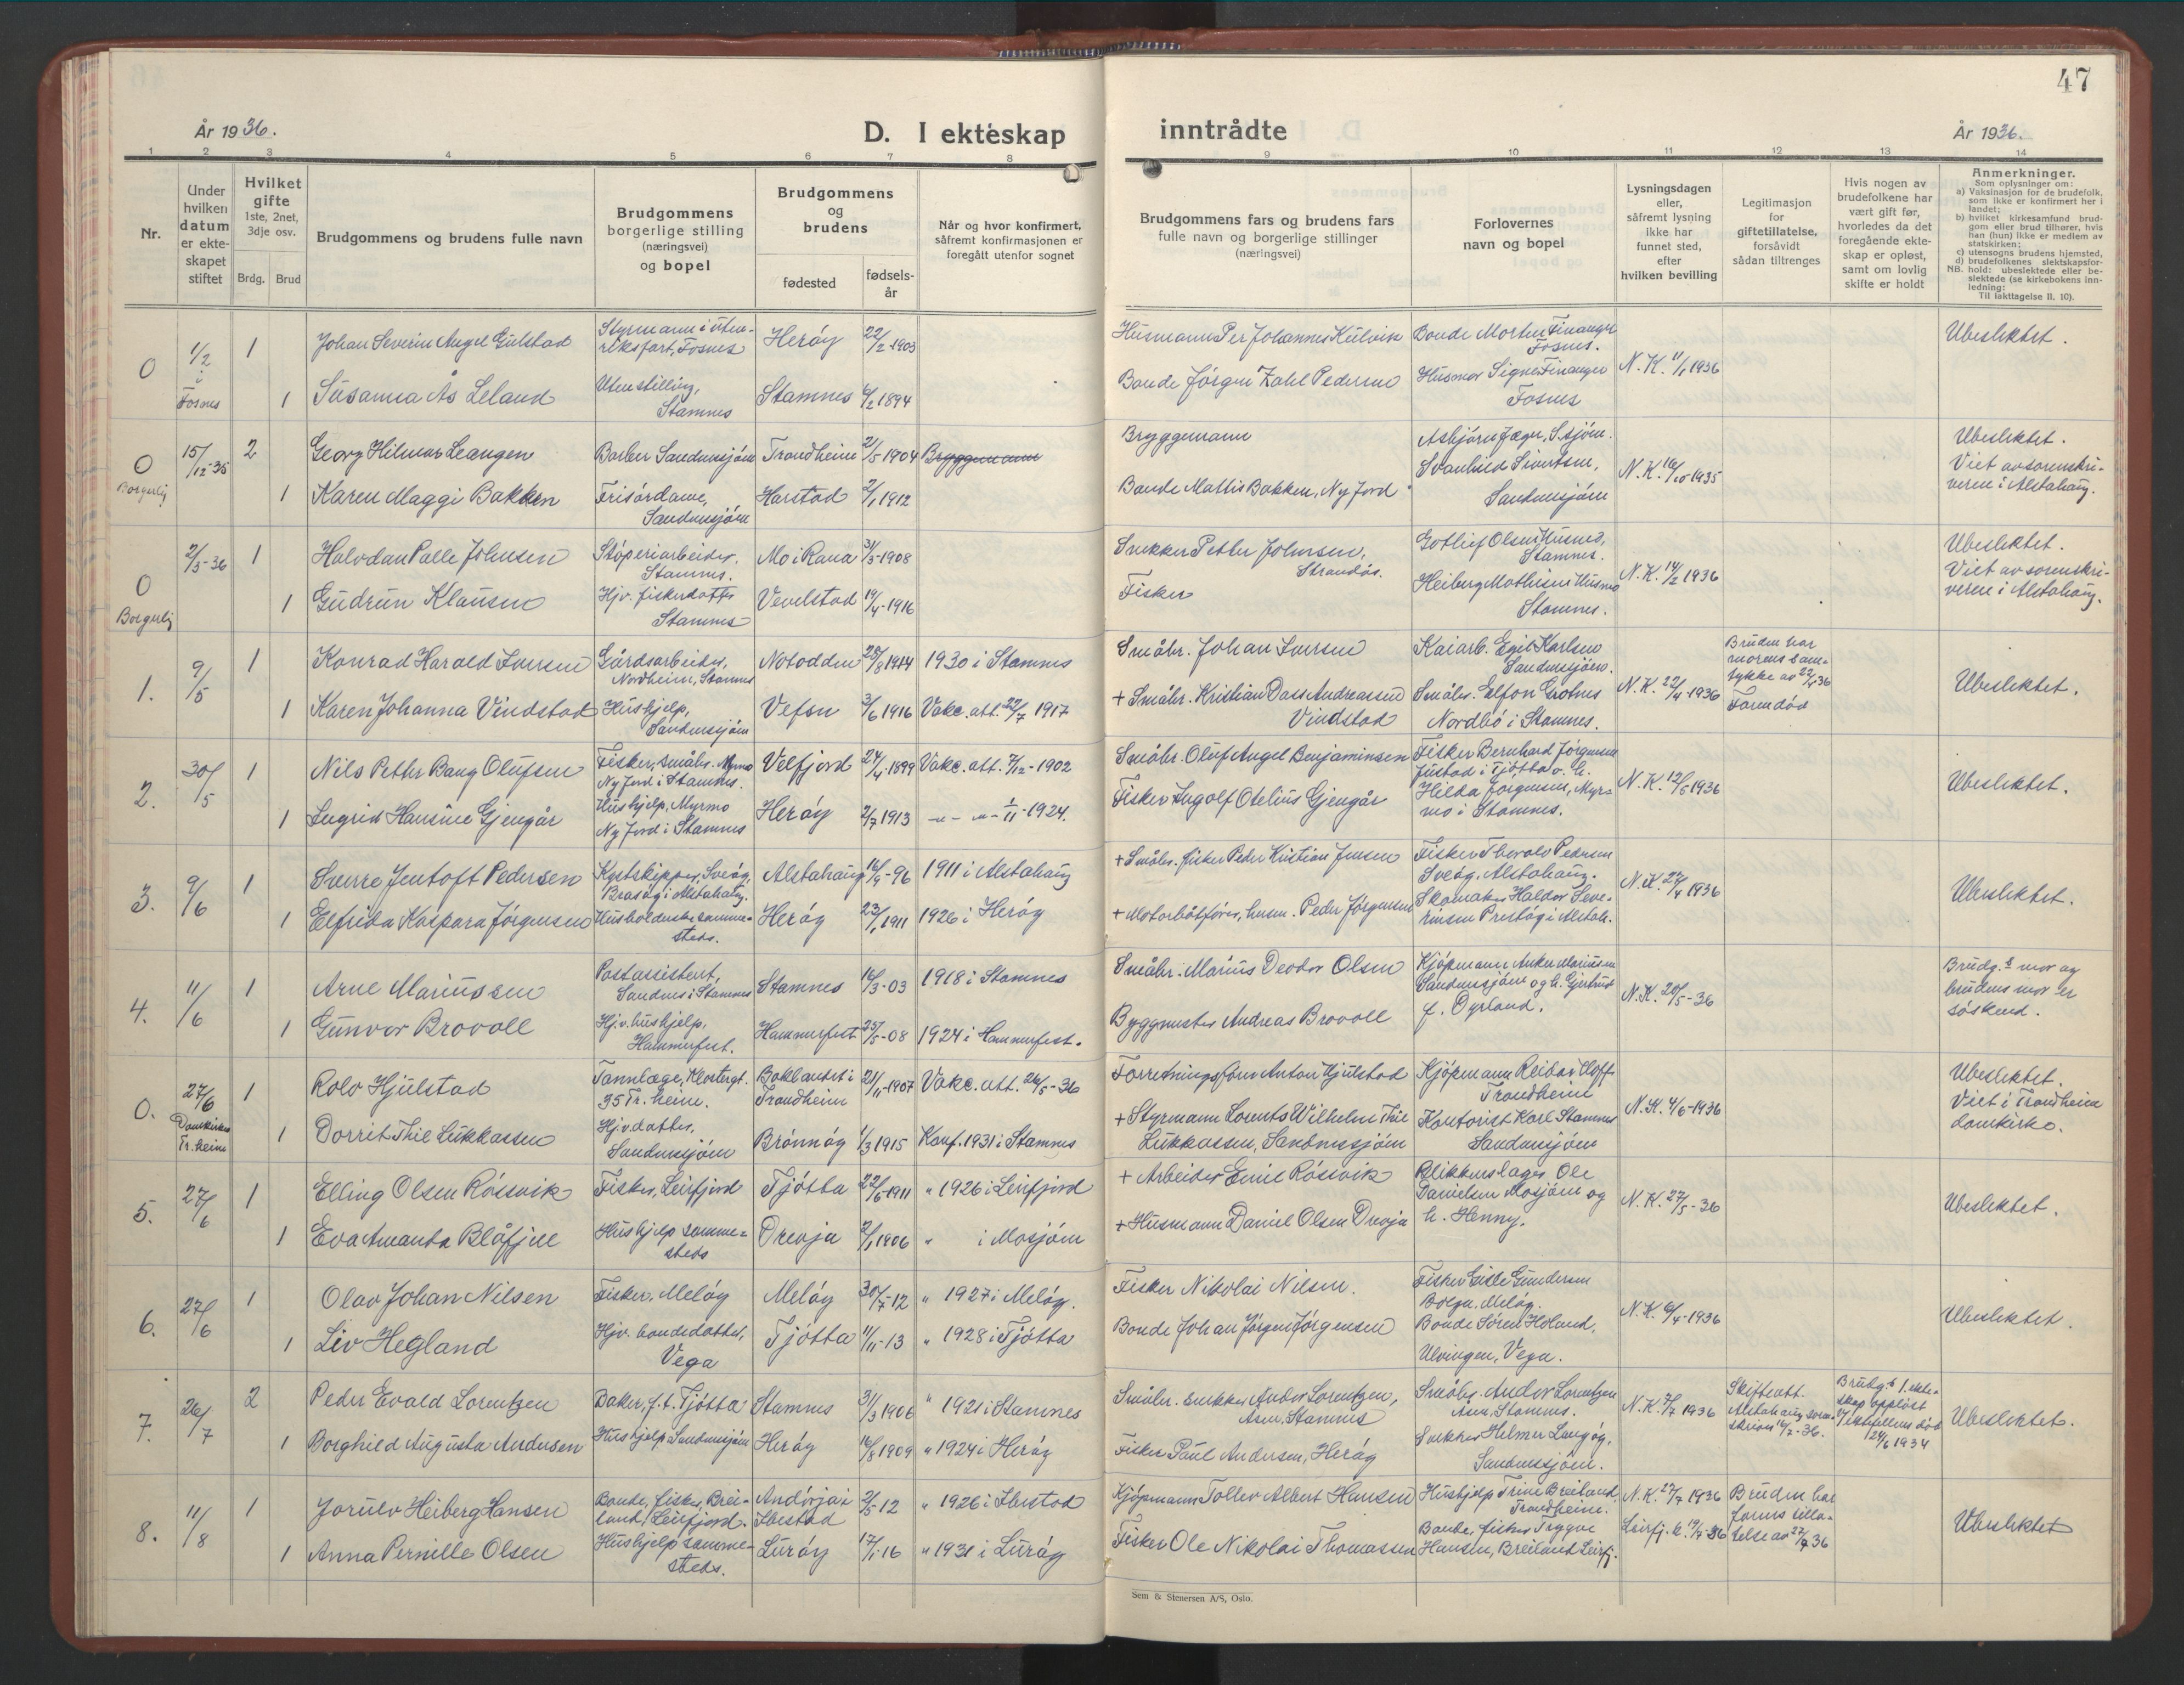 47
År 1936.
D. I ekteskap inntrådte
År 1936.
1 2 3 4 5 6 7 8 9 10 11 12 13 14
Nr.
Under hvilken datum er ekte-skapet stiftet
Hvilket gifte
1ste, 2net, 3dje osv.
Brdg. Brud
Brudgommens og brudens fulle navn
Brudgommens borgerlige stilling (næringsvei) og bopel
Brudgommens og brudens
fødested
fødsels-år
Når og hvor konfirmert, såfremt konfirmasjonen er foregått utenfor sognet
Brudgommens fars og brudens fars fulle navn og borgerlige stillinger (næringsvei)
Forlovernes navn og bopel
Lysningsdagen eller, såfremt lysning ikke har funnet sted, efter hvilken bevilling
Legitimasjon for giftetillatelse, forsåvidt sådan tiltrenges
Hvis nogen av brudefolkene har vært gift før, hvorledes da det foregående ekte-skap er opløst, samt om lovlig skifte er holdt
Anmerkninger.
Som oplysninger om:
a) Vaksinasjon for de brudefolk, som ikke er konfirmert her i landet;
b) hvilket kirkesamfund brud-gom eller brud tilhører, hvis han (hun) ikke er medlem av statskirken;
c) utensogns brudens hjemsted,
d) brudefolkenes slektskapsfor-hold: ubeslektede eller be-slektede (se kirkebokens inn-ledning:
NB.
Til Iakttagelse II. 10).
0 1/2 i Fosnes 1 Johan Severin Angel Gulstad
Styrmann i uten-riksfart, Fosnes Herøy 22/2-1903
Husmann Per Johannes Kulvik
Bonde Morten Finanger Fosnes.
N.K. 11/1 1936
Ubeslektet.
1 Susanna Ås Leland
Uten stilling, Stamnes Stamnes 6/2 1894
Bonde Jørgen Zahl Pedersen
Husmor Signe Finanger Fosnes
0 Borgerlig 15/12-35 2 Georg Hilmar Leangen
Barber Sandnessjøen Trondheim 21/5 1904 Bryggemann
Bryggemann
Asbjørn Jæger, S.sjøen.
N.K. 16/10-1935
Ubeslektet. Viet av sorenskri-veren i Alstahaug.
1 Karen Maggi Bakken
Frisørdame, Sandnessjøen Harstad 2/1 1912
Bonde Mattis Bakken, Ny Jord
Svanhild Sivertsen, Sandnessjøen
0 Borgerlig 2/3-36 1 Halvdan Palle Johnsen
Støperiarbeider, Stamnes. Mo i Rana 3/3-1908
Snekker Petter Johnsen, Strandås.
Gotlief Olsen Husmo, Stamnes.
N.K. 14/2 1936
Ubeslektet. Viet av sorenskri-veren i Alstahaug.
1 Gudrun Klausen
Hjv. fiskerdatter Stamnes Vevelstad 19/4-1916
Fisker
Heiberg Mathisen Husmo Stamnes.
1. 9/5 1 Konrad Harald Iversen
Gårdsarbeider, Nordheim, Stamnes Notodden 25/8 1914 1930 i Stamnes
Småbr. Johan Iversen
Kaiarb. Egil Karlsen Sandnessjøen.
N.K. 22/4 1936
Bruden har morens sam-tykke av 22/4 36 Faren død
Ubeslektet.
1 Karen Johanna Vindstad
Hushjelp, Sandnessjøen Vefsn 3/6 1916 Vakc. att. 22/7 1917
+ Småbr. Kristian Dass Andreassen Vindstad
Småbr. Elfon Grotnes Nordbø i Stamnes.
2. 30/5 1 Nils Petter Bang Olufsen
Fisker, småbr. Myrmo Ny Jord i Stamnes. Velfjord 24/4-1899 Vakc. att. 7/12-1902
Småbr. Oluf Angel Benjaminsen
Fisker Bernhard Jørgensen Justad i Tjøtta o. h.
N.K. 12/5 1936
Ubeslektet.
1 Ingrid Hansine Gjengår
Hushjelp, Myrmo Ny Jord i Stamnes Herøy 2/7 1913 -"- "- 1/11-1924.
Fisker Ingolf Otelius Gjengår
Hilda Jørgensen, Myr-mo i Stamnes.
3. 9/6 1 Sverre Jentoft Pedersen
Kystskipper, Sveøg, Brasøy i Alstahaug. Alstahaug 16/9-96 1911 i Alstahaug
+ Småbr. fisker Peder Kristian Jensen
Fisker Thorolv Pedersen Sveøg, Alstahaug.
N.K. 27/4 1936
Ubeslektet.
1 Elfrida Kaspara Jørgensen
Husholderske samme-steds. Herøy 23/1 1911 1926 i Herøy
+ Motorbåtfører, husm. Peder Jørgensen
Skomaker Haldor Seve-rinsen Prestøy i Alstah.
4. 11/6 1 Arne Mariussen
Postassistent, Sandnes i Stamnes Stamnes 16/3-03 1918 i Stamnes
Småbr. Marius Deodor Olsen
Kjøpmann Anker Mariussen Sandnessjøen og h. Gjertrud f. Dyrland.
N.K. 20/5-36
Brudg.s mor og brudens mor er søskend.
1 Gunvor Brovoll
Hjv. hushjelp, Hammerfest. Hammerfest 25/5-08 1924 i Hammerfest.
Byggmester Andreas Brovoll
0. 27/6 Domkirken Tr.heim 1 Rolv Hjulstad
Tannlæge, Klostergt. 35 Tr.heim. Baklandet i Trondheim 21/11-1907 Vakc. att. 26/5-36
Forretningsfører Anton Hjulstad
Kjøpmann Reidar Hoff Trondheim
N.K. 4/6-1936
Ubeslektet. Viet i Trondheim domkirke.
1 Dorrit Thie Lukkassen
Hjv. datter, Sandnessjøen Brønnøy 1/3 1915 Konf. 1931 i Stamnes
+ Styrmann Lorents Wilhelm Thie Lukkassen, Sandnessjøen
Kontorist Karl Stamnes Sandnessjøen
5. 27/6 1 Elling Olsen Røssvik
Fisker, Leirfjord Tjøtta 22/6-1911 " 1926 i Leirfjord
+ Arbeider Emil Røssvik
Blikkenslager Ole Danielsen Mosjøen og h. Henny.
N.K. 27/5-36
Ubeslektet.
1 Eva Amanda Blåfjell
Hushjelp samme-steds Drevja 2/1 1906 " i Mosjøen
+ Husmann Daniel Olsen Drevja
6. 27/6 1 Olav Johan Nilsen
Fisker, Meløy Meløy 30/7-12 " 1927 i Meløy.
Fisker Nikolai Nilsen.
Fisker Gisle Gundersen Bolga. Meløy.
N.K. 6/4-1936
Ubeslektet.
1 Liv Hegland
Hjv. bondedatter, Vega Tjøtta 11/11-13 " 1928 i Tjøtta
Bonde Johan Jørgen Jørgensen
Bonde Søren Høland, Ulvingen, Vega.
7. 26/7 2 Peder Evald Lorentzen
Baker, f.t. Tjøtta Stamnes 31/3 1906 " 1921 i Stamnes
Småbr. snekker Andor Lorentzen, Asen, Stamnes
Småbr. Andor Lorentzen Asen, Stamnes.
N.K. 7/7 1936
Skifteatt. Alstahaug soren-skriveri 16/7-36.
Brudg.s 1. ekte-skap oppløst v/ektefellens død 24/6 1934
Ubeslektet.
1 Borghild Augusta Andersen
Hushjelp Sandnessjøen Herøy 16/8 1909 " 1924 i Herøy
Fisker Paul Andersen, Herøy
Snekker Helmer Langøy, Sandnessjøen.
8. 11/8 1 Jorulv Heiberg Hansen
Bonde, fisker, Brei-land, Leirfjord. Andørja i Ibestad 2/5-12 " 1926 i Ibestad
Kjøpmann Tollev Albert Hansen
Hushjelp Trine Breiland, Trondheim.
N.K. 27/7 1936
Leirfj. k. 19/7-36
Bruden har farens tilla-telse av 27/7 36
Ubeslektet
1 Anna Pernille Olsen
Hushjelp samme-steds. Lurøy 17/1-16 " 1931 i Lurøy
Fisker Ole Nikolai Thomassen
Bonde, fisker Trygve Hansen, Breiland Leirfj.
Sem & Stenersen A/S, Oslo.